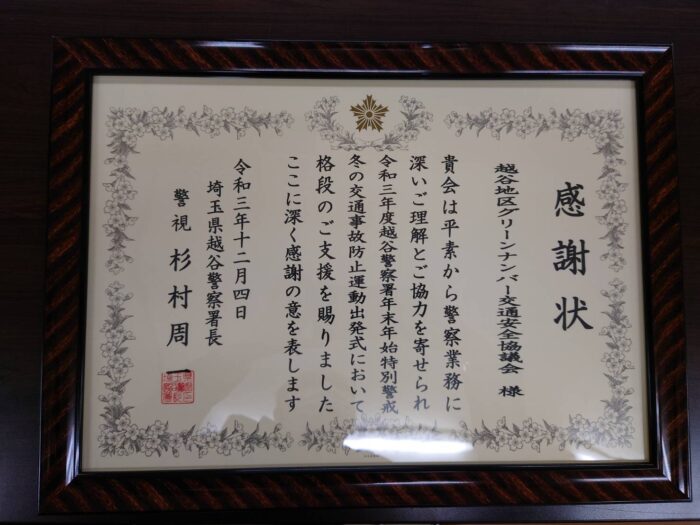 感謝状
越谷地区グリーンナンバー交通安全協議会 様
貴会は平素から警察業務に
深いご理解とご協力を寄せられ
令和三年度越谷警察署年末年始特別警戒
冬の交通事故防止運動出発式において
格段のご支援を賜りました
ここに深く感謝の意を表します
令和三年十二月四日
埼玉県越谷警察署長
警視 杉村周一